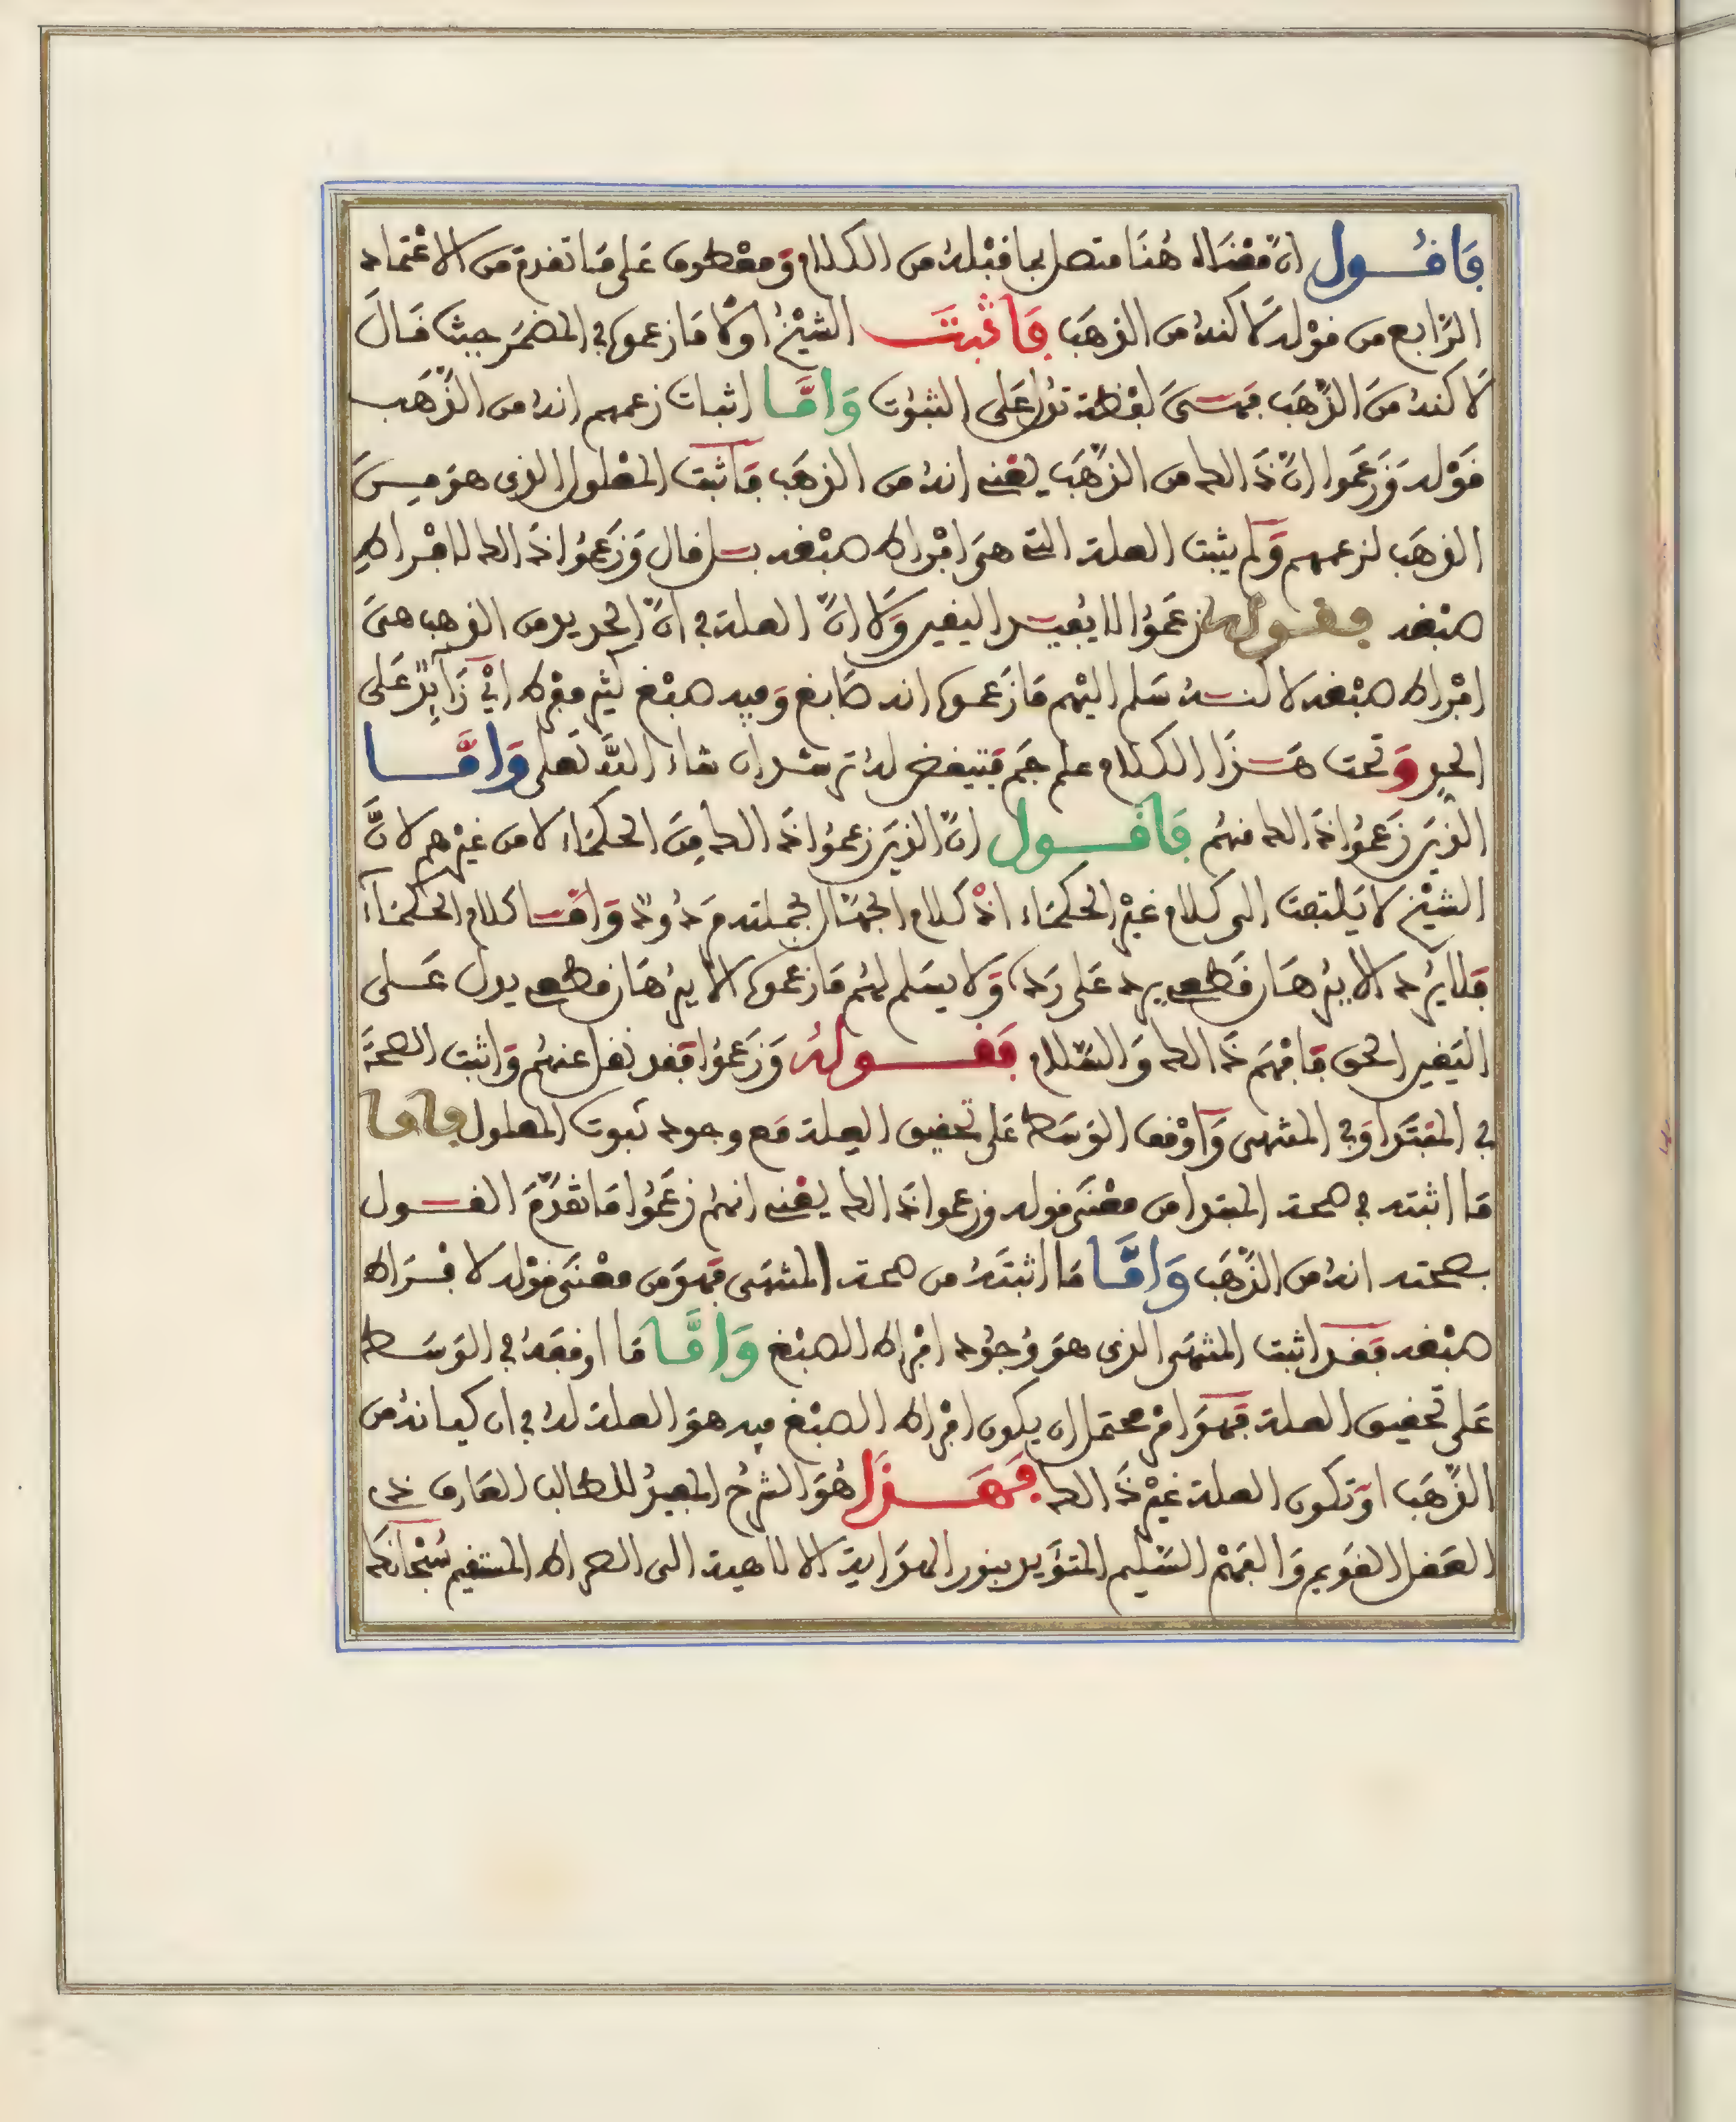 فَأقُول انّ مَعْنَاه هُنَا متصل بما قبْله من الكلام وَمعْطوف عَلى مَا تقدم من الاعْتماد
الرّابع من قوْله لَاكنه من الذهَب فَأثْبتَ الشيْخ اوّلا ما زعموه في المضمَر حيث قَالَ
لَاكنه منَ الذّهَب فهيَ لفظة تدل عَلى الثبُوت وَامَّا اثبات زعمهم انه من الذّهَب
قَوْله وَزعَموا انّ ذَالك من الذّهَب يعْني انه من الذهَب فأثبت المعْلول الذي هوَ
الذهَب لزعمهم وَلم يثبت العلة التي هيَ افْراط صبْغه بل قال وَزعَمُوا ذَالك لافْراطِ
صبْغه فقوله زعَمُوا لا يُفيد اليفين وَلَا انّ العلة في انّ الحديد من الذهب هيَ
افْراط صبْغه لاكنه سَلم اليْهم مَا زَعموه انه صَابغ وَفيه صبْغ كثير مفْرط ايْ زَايِدٌ عَلى
الحدِ وَتحت هَذَا الكلام علم جَم فتيفض له ترشد ان شاء اللَّه تعَلى وَامَّا
الذينَ زَعَمُوا ذَالك منهُم فَأقُول انّ الذينَ زعمُوا ذَالك مِنَ الحكمَاء لا من غيْرهم لانَّ
الشيْخ لا يَلتفت الى كلام غيْر الحكمَاء اذْ كلام الجهّال بجملته مرْدُودٌ وَامّا كلام الحكمَاء
فلا يرُد الا ببُرْهَان قَطعي يرد عَلى رَده وَلا يسَلم لهُم مَا زعموه الا ببُرْهَان قطعي يدل عَلى
اليَفين الحق فَافْهَم ذَالك وَالسّلام فَقَوله وَزعَمُوا فقد نفل عنهُم وَاثبت الصحَةَ
في المبْتَدا وَفي المنتهى وَأوْقف الوَسَط عَلى تحفيق العِلة مَع وجود ثبوت المعلول فاما
مَا اثبته في صحة المبتدا من معْنَى قوله وزعموا ذَالك يعْني انهُم زعَمُوا مَا تقَدّمَ القول
بصحته انه من الذّهَب وَامَّا مَا اثبتَه من صحة المنتهَى فهوَ من معْنَى قوْله لافْرَاط
صبْغه فقد اثبت المنتهَى الذي هوَ وُجوُد افْراط الصبْغ وَامَّا مَا اوقفَه في الوَسَط
عَلى تحفيق العلة فهوَ امْر محتمل ان يكون افْراط الصبْغ فيه هوَ العلة له في ان كيانه من
الذّهَب اوْ تكون العلة غيْر ذَالك فَهَذَا هُوَ الشرْح المفيدُ للطالب العَارف ذي
العَفل القوِيم وَالفهْم السّليم المتؤيد بنور الهدَاية الالاهية الى الصراط المستفيم سُبْحَانَهُ